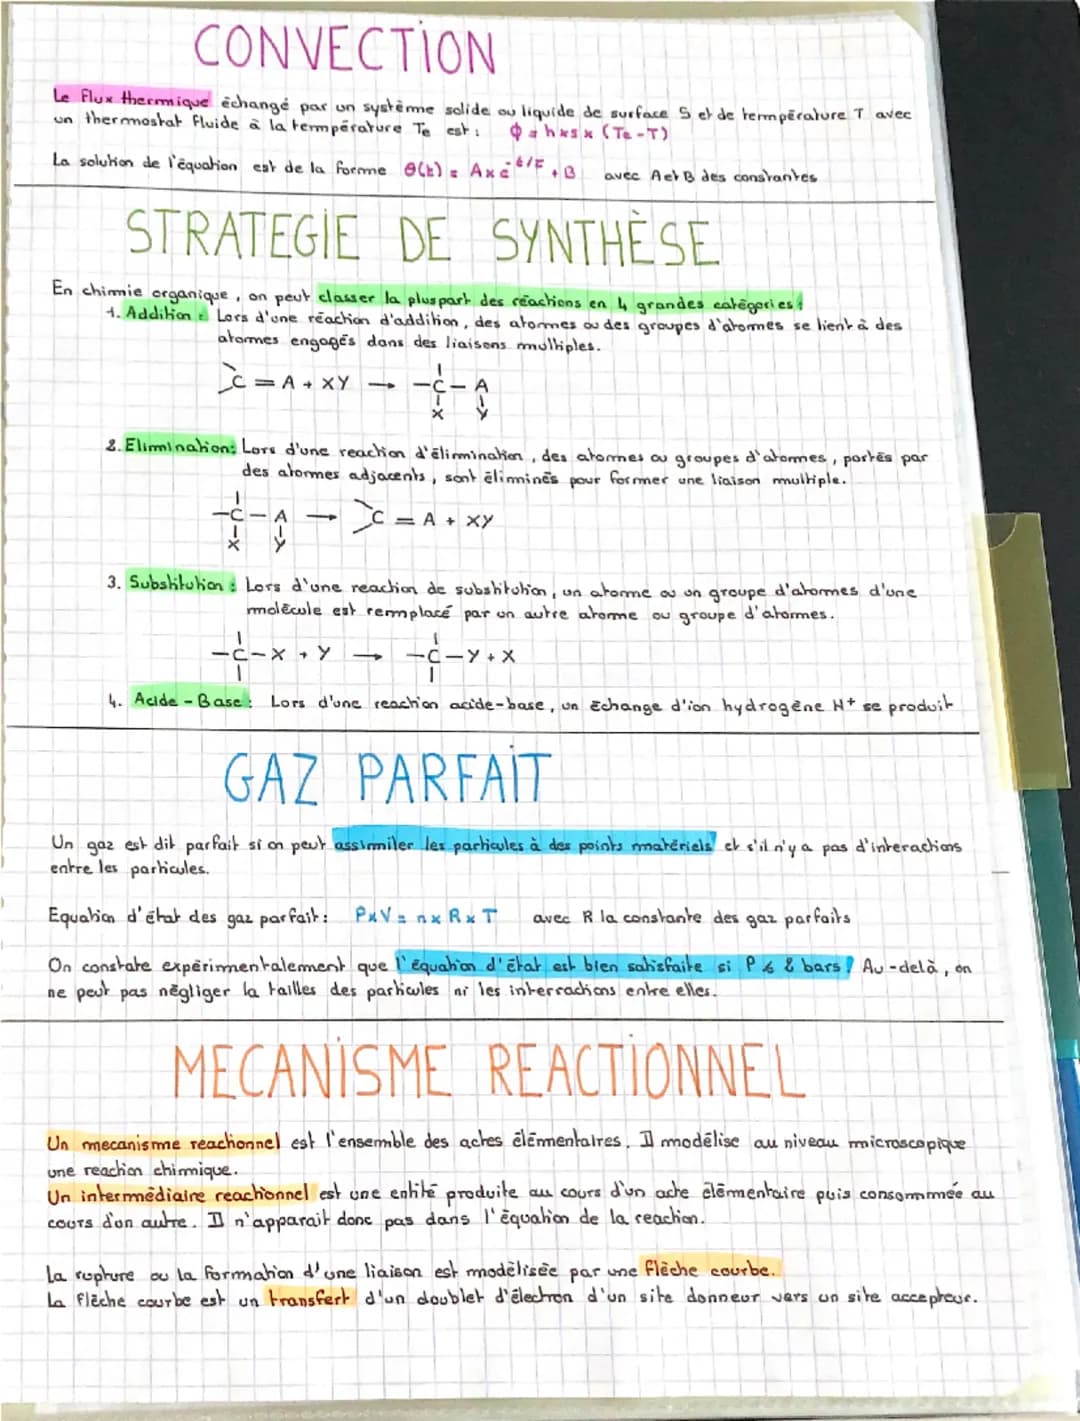 CONVECTION
Le Flux thermique échangé par un système solide ou liquide de surface S et de température T avec
un thermostat fluide à la température Te est : ϕ = h×s× (Te-T)
La solution de l'équation est de la forme θ(t) = A×e^-t/τ + B avec A et B des constantes
STRATEGIE DE SYNTHÈSE
En chimie organique, on peut classer la pluspart des réactions en 4 grandes catégories :
1. Addition : Lors d'une réaction d'addition, des atomes ou des groupes d'atomes se lient à des
atomes engagés dans des liaisons multiples.
C = A + XY → -C - A
X Y
2. Elimination: Lors d'une reaction d'élimination, des atomes ou groupes d'atomes, portés par
des atomes adjacents, sont éliminés pour former une liaison multiple.
-C - A → C = A + XY
X Y
3. Substitution : Lors d'une reaction de substitution, un atome ou un groupe d'atomes d'une
molécule est remplacé par un autre atome ou groupe d'atomes.
-C-X + Y → -C-Y + X
4. Acide - Base : Lors d'une reaction acide-base, un échange d'ion hydrogène H+ se produit
GAZ PARFAIT
Un gaz est dit parfait si on peut assimiler les particules à des points matériels et s'il n'y a pas d'interactions
entre les particules.
Equation d'état des gaz parfait : P×V = n×R×T avec R la constante des gaz parfaits
On constate expérimentalement que l'équation d'état est bien satisfaite si P ≤ 2 bars ! Au-delà, on
ne peut pas négliger la tailles des particules ni les interractions entre elles.
MECANISME REACTIONNEL
Un mecanisme reactionnel est l'ensemble des actes élémentaires. Il modélise au niveau microscopique
une reaction chimique.
Un intermédiaire reactionnel est une entité produite au cours d'un acte élémentaire puis consommée au
cours d'un autre. Il n'apparait donc pas dans l'équation de la reaction.
La rupture ou la formation d'une liaison est modélisée par une flèche courbe.
La flèche courbe est un transfert d'un doublet d'électron d'un site donneur vers un site accepteur.